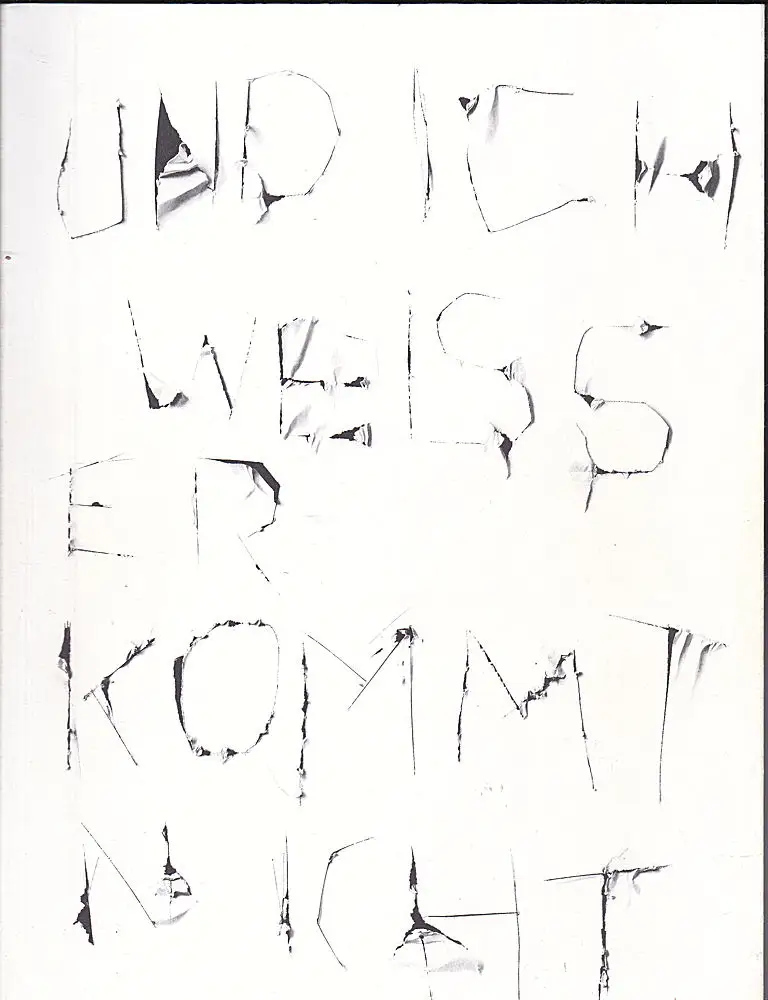 UND ICH
WEISS
ER
KOMMT
NICHT